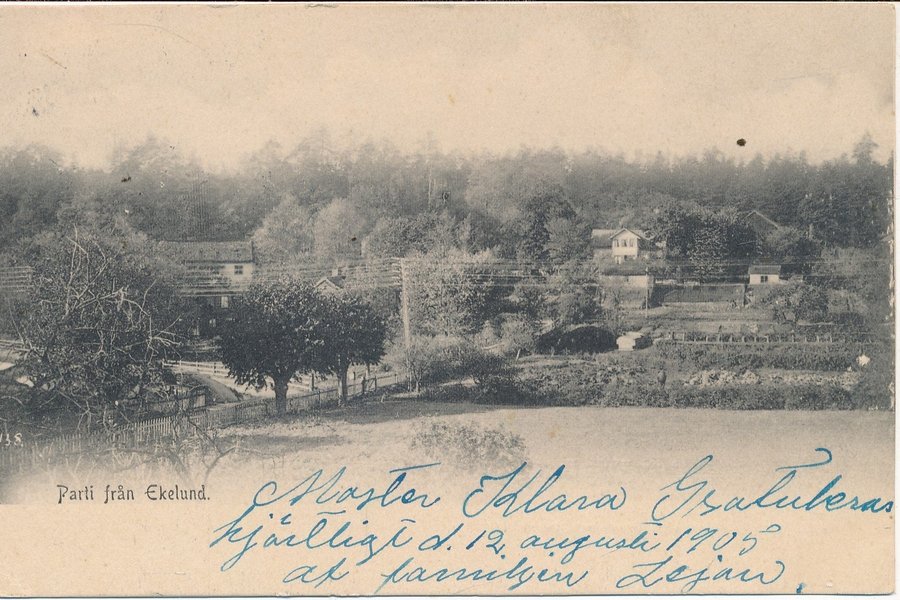 138
Parti från Ekelund.
Moster Klara Gratuleras
hjärtligt d. 12 augusti 1905
af familjen